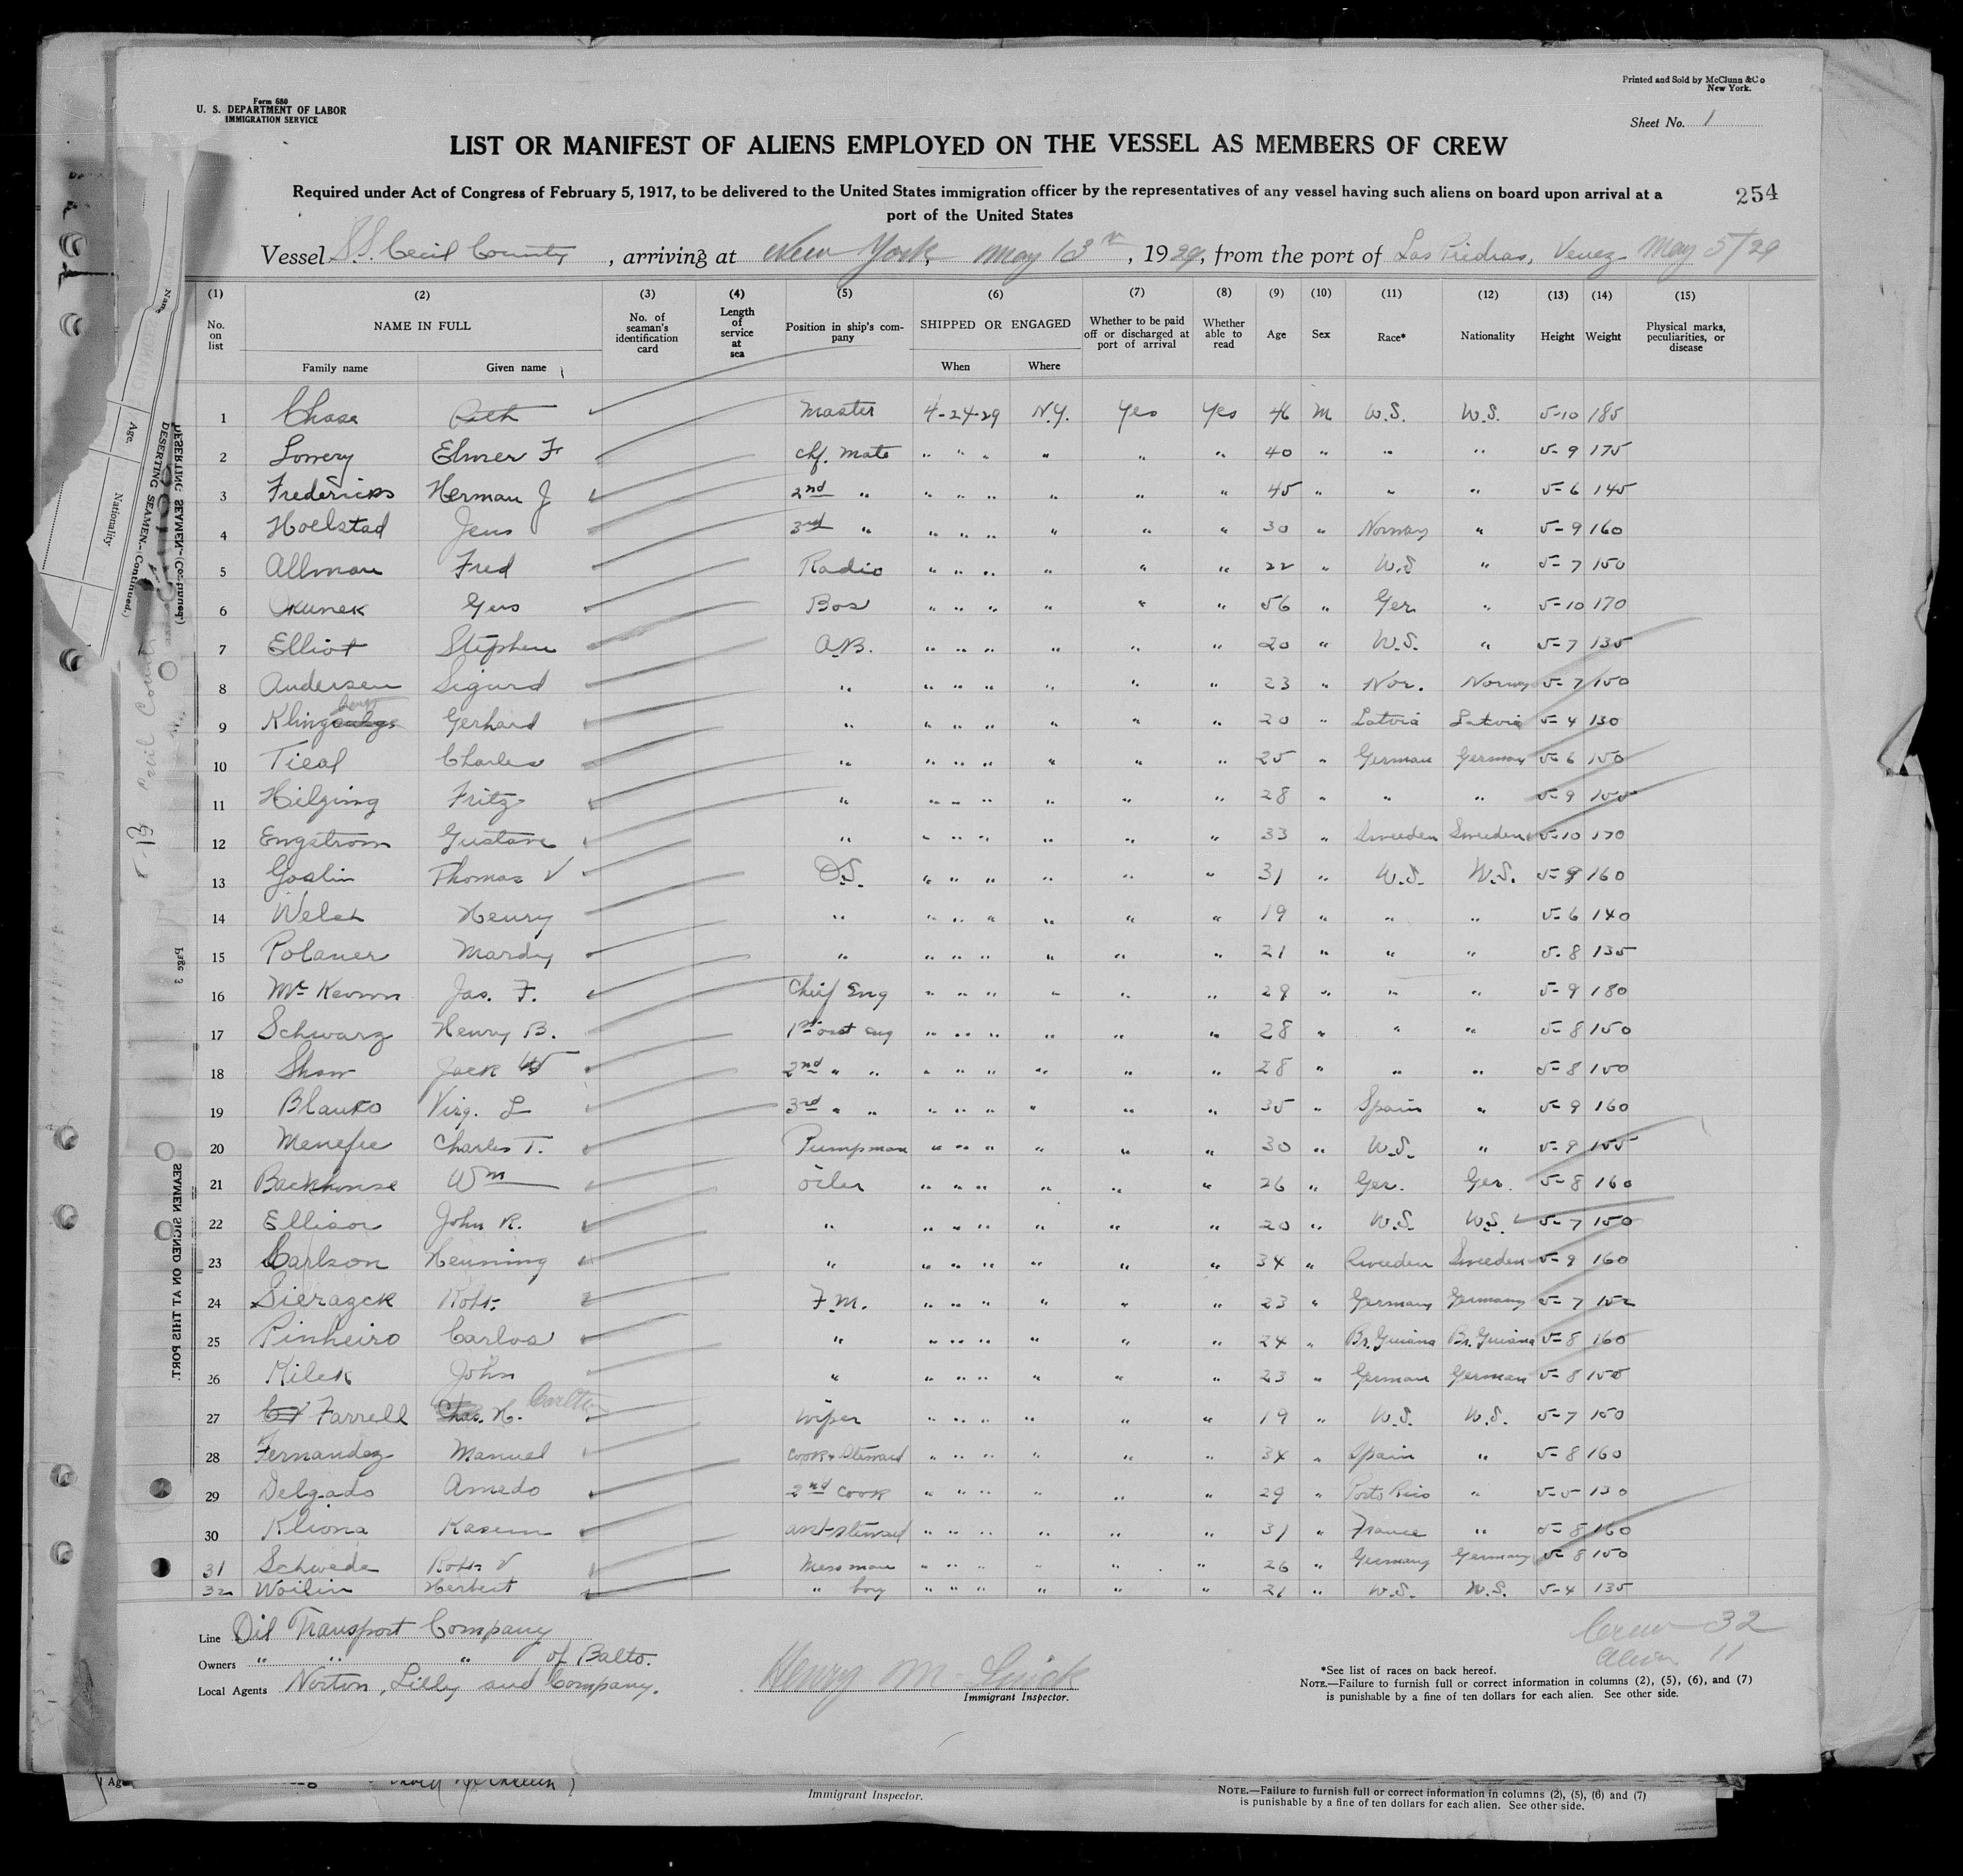 Form 680
U. S. DEPARTMENT OF LABOR
IMMIGRATION SERVICE
Printed and Sold by McClunn & Co
New York.
Sheet No. 1
LIST OR MANIFEST OF ALIENS EMPLOYED ON THE VESSEL AS MEMBERS OF CREW
Required under Act of Congress of February 5, 1917, to be delivered to the United States immigration officer by the representatives of any vessel having such aliens on board upon arrival at a
port of the United States
254
Vessel S.S. Cecil County, arriving at New York, May 13th, 1929, from the port of Las Piedras, Venez May 5/29
(1) (2) (3) (4) (5) (6) (7) (8) (9) (10) (11) (12) (13) (14) (15)
No. on list NAME IN FULL No. of seaman's identification card Length of service at sea Position in ship's company SHIPPED OR ENGAGED Whether to be paid off or discharged at port of arrival Whether able to read Age Sex Race* Nationality Height Weight Physical marks, peculiarities, or disease
Family name Given name When Where
1 Chase Master 4-24-29 N.Y. Yes Yes 46 M U.S. U.S. 5-10 185
2 Lowery Elmer F Chf. Mate " " " " " " 40 " " " 5-9 175
3 Fredericks Herman J 2nd " " " " " " " 45 " " " 5-6 145
4 Hoelstad Jens 3rd " " " " " " " 30 " Norway " 5-9 160
5 Allman Fred Radio " " " " " " 22 " U.S " 5-7 150
6 Okunek Gus Bos " " " " " " 56 " Ger. " 5-10 170
7 Elliot Stephen A.B. " " " " " " 20 " U.S. " 5-7 135
8 Andersen Sigurd " " " " " " " 23 " Nor. Norway 5-7 150
9 Klingenberg Gerhard " " " " " " " 20 " Latvia Latvia 5-4 130
10 Tieal Charles " " " " " " " 25 " German German 5-6 150
11 Hilging Fritz " " " " " " " 28 " " " 5-9 155
12 Engstrom Gustave " " " " " " " 33 " Sweeden Sweeden 5-10 170
13 Goslin Thomas V O.S. " " " " " " 31 " U.S. U.S. 5-9 160
14 Welch Henry " " " " " " " 19 " " " 5-6 140
15 Polaner Mardy " " " " " " " 21 " " " 5-8 135
16 McKeown Jas. F. Chief Eng " " " " " " 29 " " " 5-9 180
17 Schwarz Henry B. 1st asst eng " " " " " " 28 " " " 5-8 150
18 Shaw Jack W 2nd " " " " " " " " 28 " " " 5-8 150
19 Blanco Virg. L 3rd " " " " " " " " 35 " Spain " 5-9 160
20 Menefee Charles T. Pumpman " " " " " " 30 " U.S. " 5-9 155
21 Backhouse Wm Oiler " " " " " " 26 " Ger. Ger. 5-8 160
22 Ellison John R. " " " " " " " 20 " U.S. U.S. 5-7 150
23 Carlson Henning " " " " " " " 34 " Sweeden Sweeden 5-9 160
24 Sierazck Robt. F.M. " " " " " " 23 " Germany Germany 5-7 152
25 Pinheiro Carlos " " " " " " " 24 " Br. Guiana Br. Guiana 5-8 160
26 Kilek John " " " " " " " 23 " German German 5-8 155
27 Farrell Chas. H. Carlton Wiper " " " " " " 19 " U.S. U.S. 5-7 150
28 Fernandez Manuel Cook & Steward " " " " " " 34 " Spain " 5-8 160
29 Delgado Amedo 2nd Cook " " " " " " 29 " Porto Rico " 5-5 130
30 Kliona Kasem asst steward " " " " " " 31 " France " 5-8 160
31 Schwede Robt V Messman " " " " " " 26 " Germany Germany 5-8 150
32 Woilin Herbert " boy " " " " " " 21 " U.S. U.S. 5-4 135
Line Oil Transport Company
Owners " " " of Balto.
Local Agents Norton, Lilly and Company.
Henry M
Immigrant Inspector.
Crew 32
Alien 11
*See list of races on back hereof.
NOTE.—Failure to furnish full or correct information in columns (2), (5), (6), and (7)
is punishable by a fine of ten dollars for each alien. See other side.
Immigrant Inspector.
NOTE.—Failure to furnish full or correct information in columns (2), (5), (6) and (7)
is punishable by a fine of ten dollars for each alien. See other side.
Name
Age.
Nationality
DESERTING SEAMEN—(Continued.)
DESERTING SEAMEN—(Continued)
5-13 Cecil County
Page 3
SEAMEN SIGNED ON AT THIS PORT.